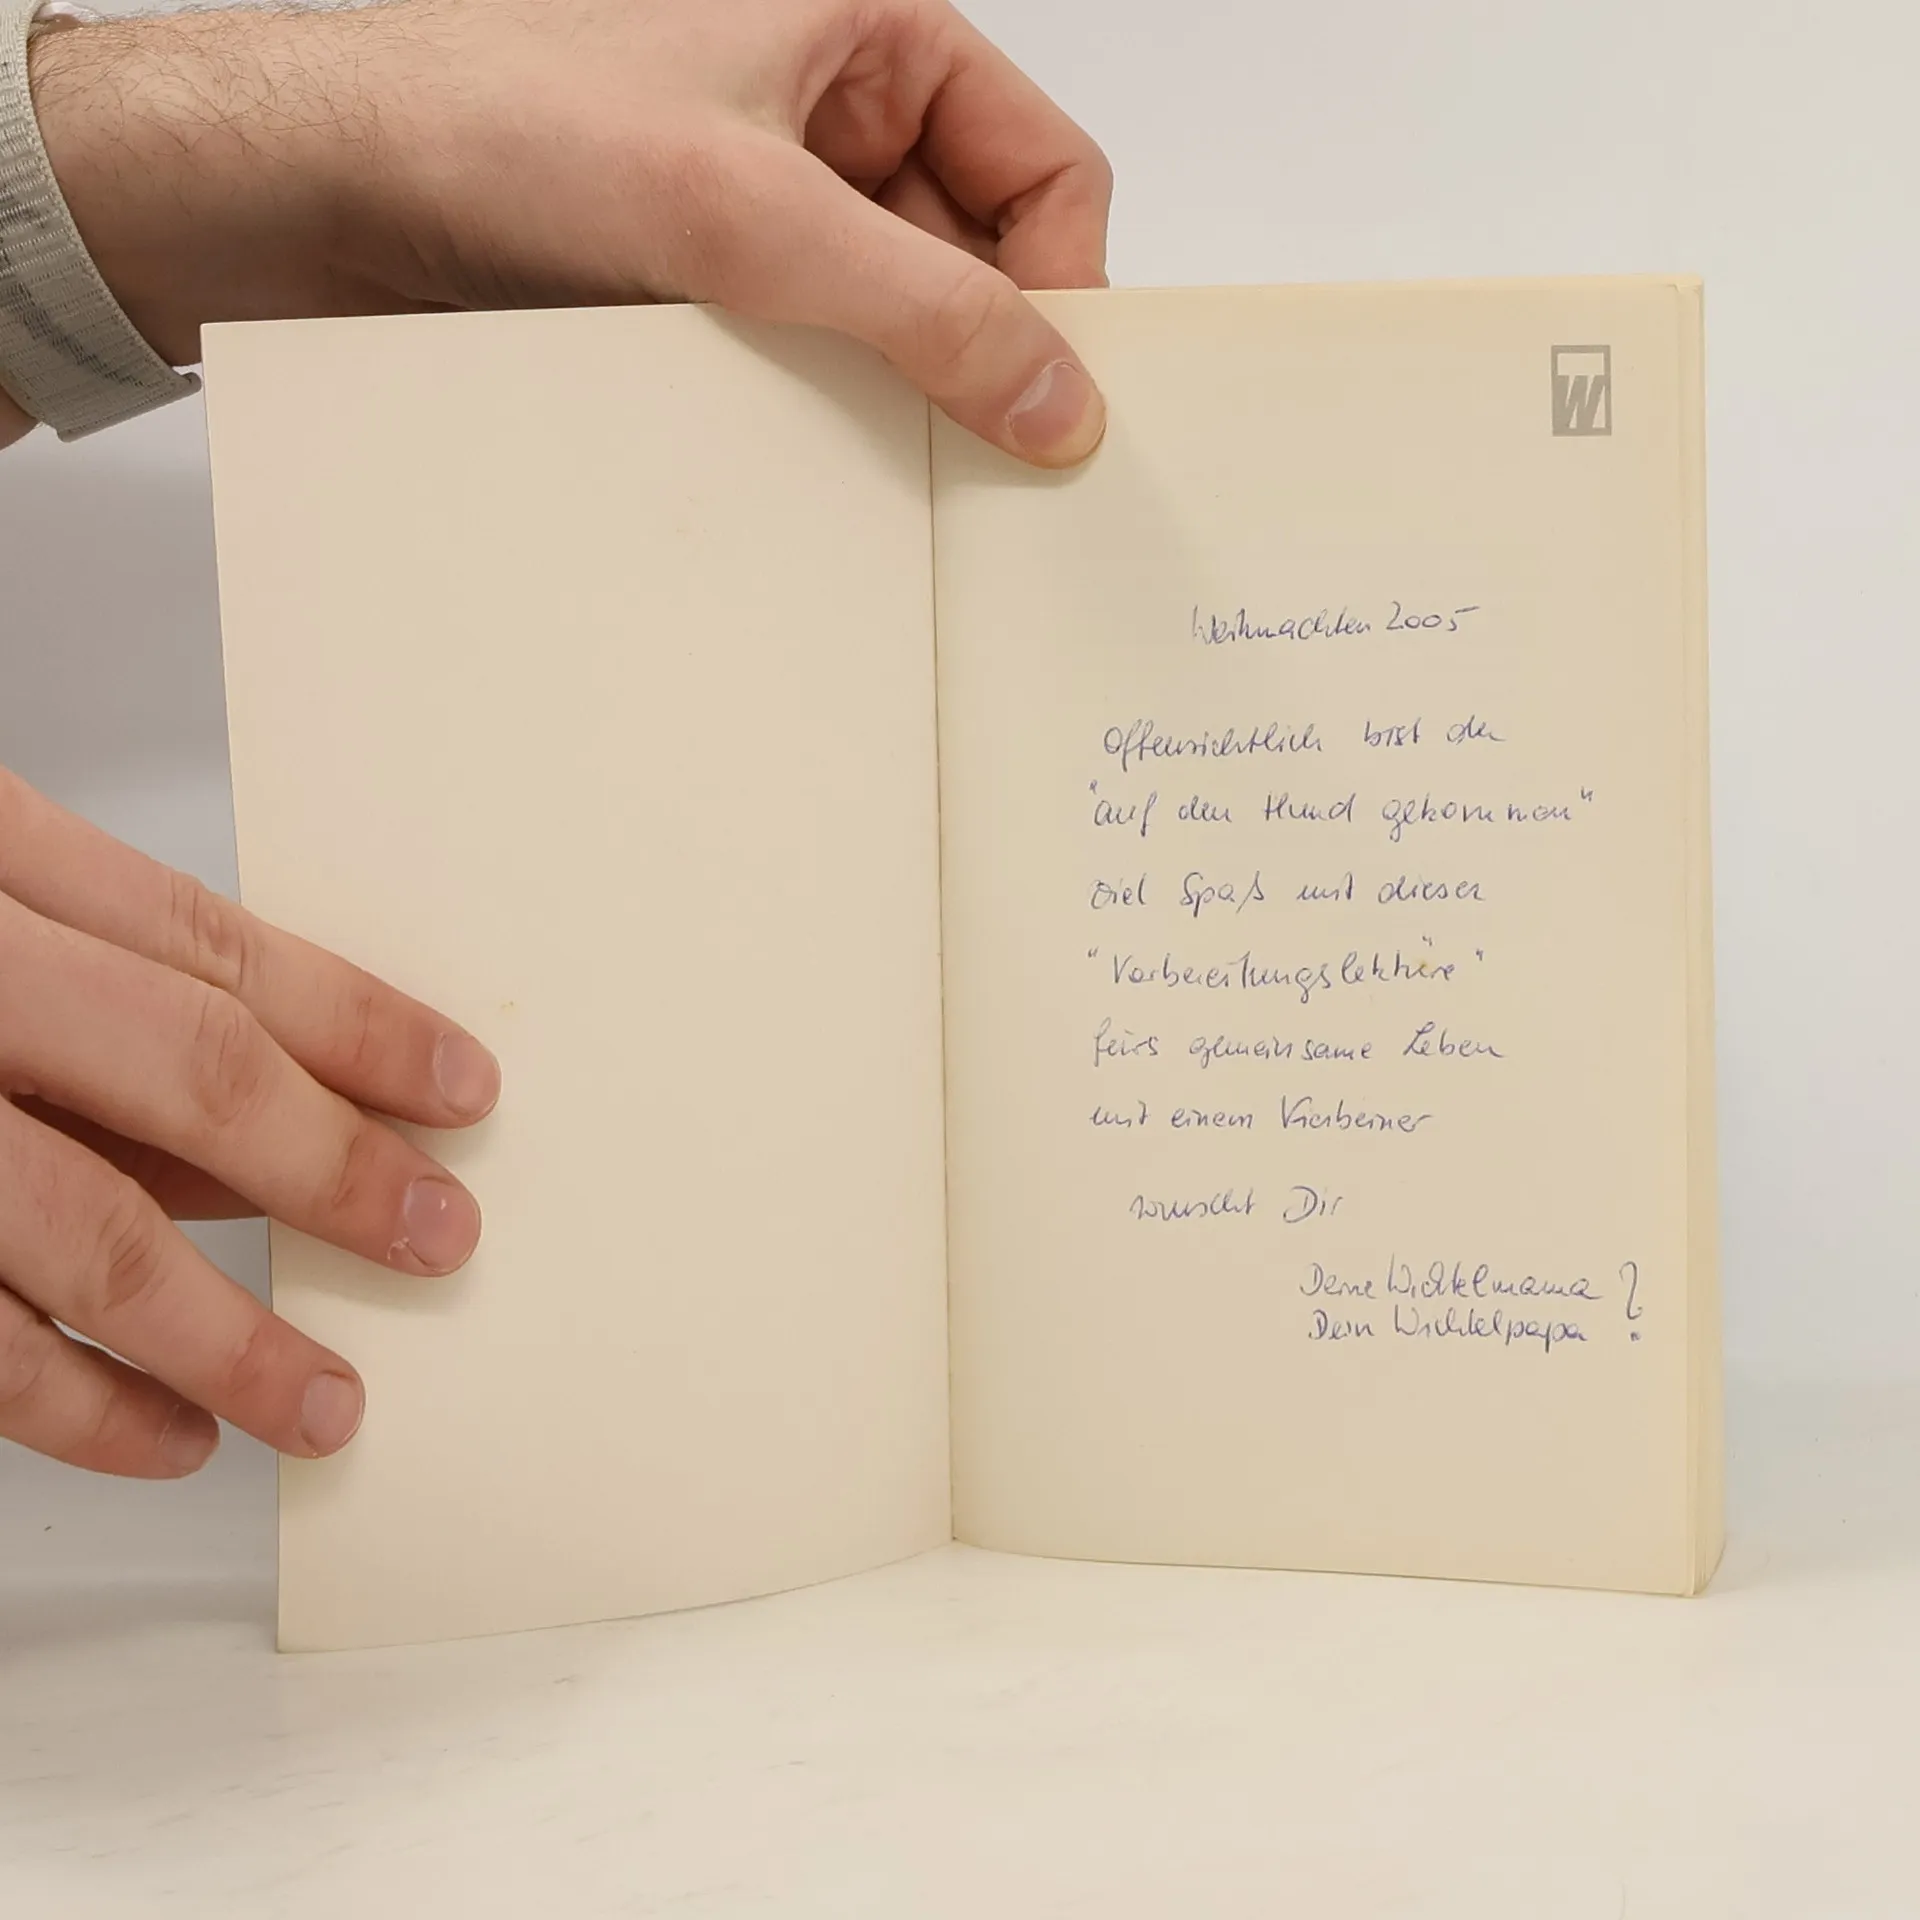 W
Weihnachten 2005
Offensichtlich bist du
"auf den Hund gekommen"
Viel Spaß mit dieser
"Vorbereitungslektüre"
fürs gemeinsame Leben
mit einem Vierbeiner
wünscht Dir
Deine Wichtelmama ?
Dein Wichtelpapa